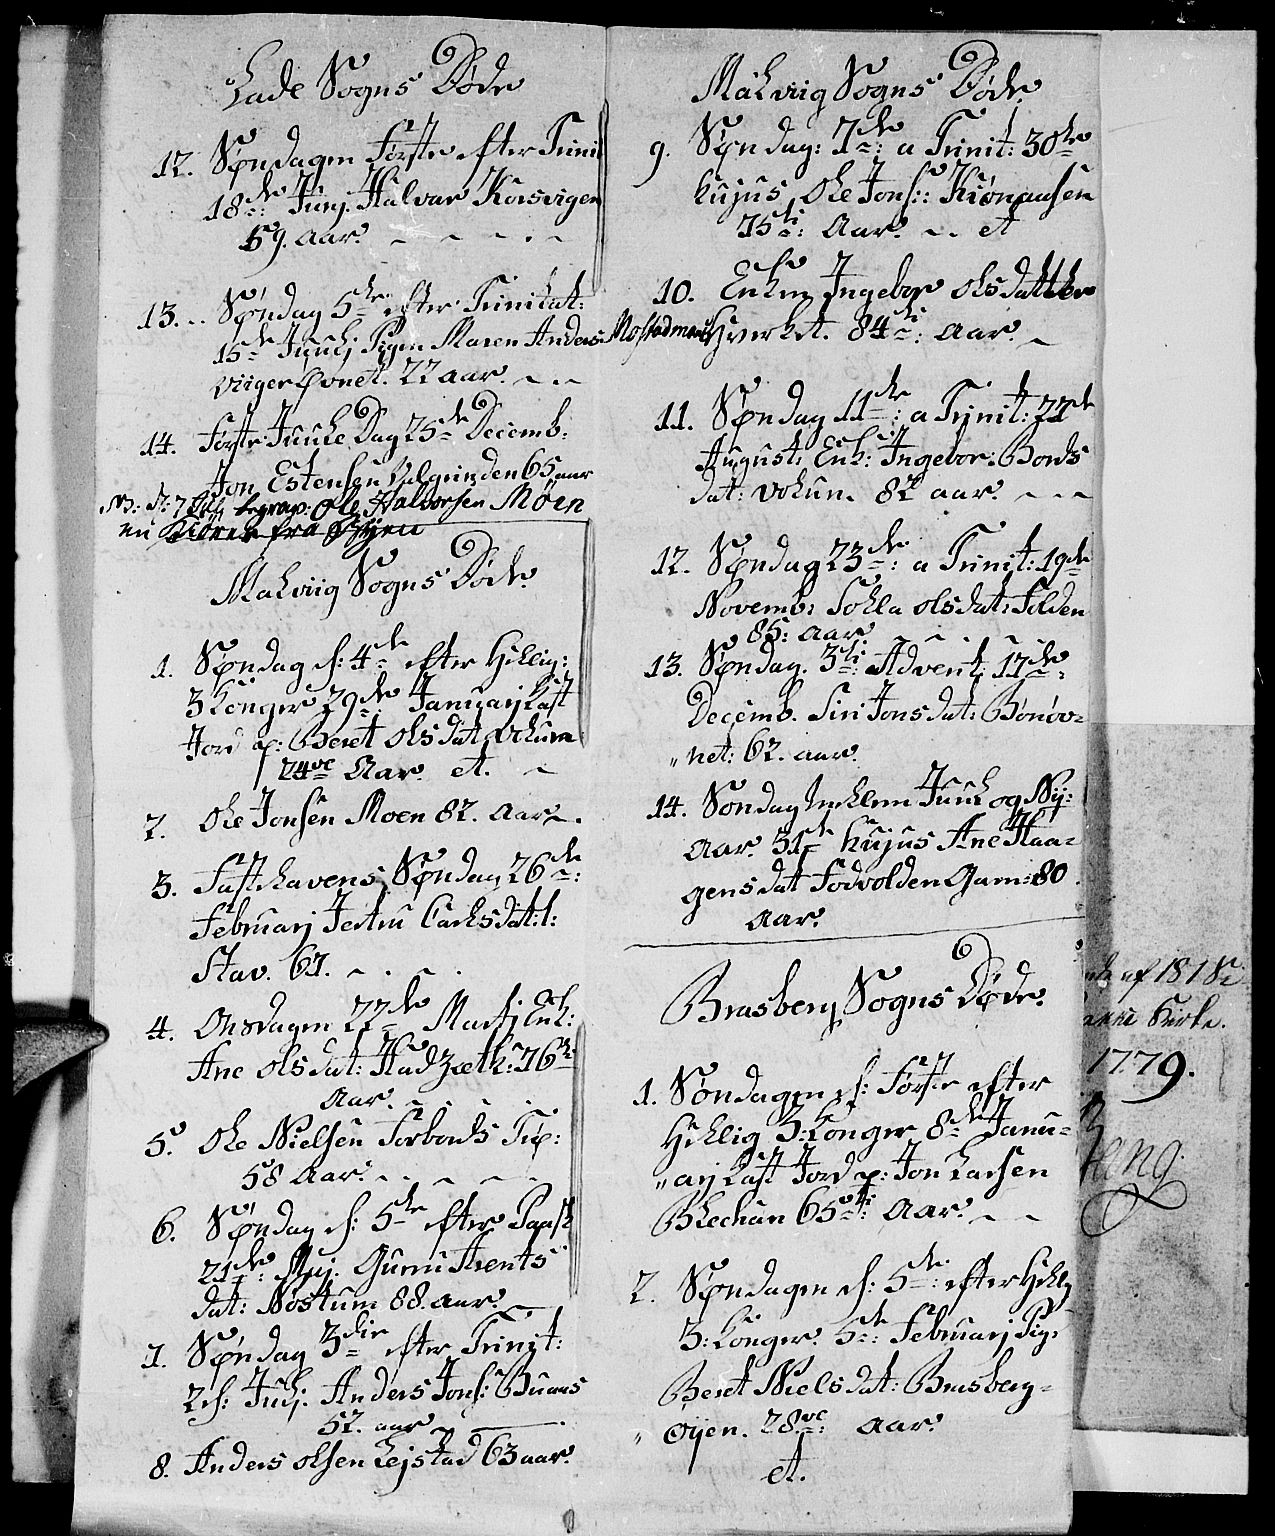 Lade Sogns Døde
12. Søndagen Første efter Trinit
18de Junj. Halvar Korsvigen
59. aar.
13. Søndag 5te efter Trinitat:
15de Pigen Maren Anders
Viiger Øvnet. 22 aar.
14. Første Juule Dag 25de Decemb:
Jon Estensen 65 aar
begrav: Ole Haldorsen Møen
nu fra Byen
Malviig Sogns Døde
1. Søndag d: 4de efter Hellig:
3 Konger 29de Januarj Kast
Jord p: Beret Olsdat Vikum
74ve Aar. et.
2. Ole Jonsen Moen 82. Aar.
3. Fastelavens Søndag 26de:
Februarj Jertru Carlsdat:
Stav. 67.
4. Onsdagen 22de Martj Enk:
Ane Olsdat: 76
Aar.
5. Ole Nielsen Torbords
58 Aar.
6. Søndag d: 5te efter Paask
21de: Maj. Gunni Arents
dat: Nostum 88 aar.
7. Søndag 3die efter Trinit:
2d: Julj. Anders Jons:
52. aar
8. Anders Olsen Lejstad 63 aar.
Malviig Sogns Døde
9. Søndag: 7de: a Trinit: 30te
hujus, Ole Jons:
75ti: Aar. et
10. Enken Ingebor Olsdatter
Mostadmark Hverket. 84ti: Aar.
11. Søndag 11de: a Trinit: 22de
August: Enk: Ingebor: Bords
dat: Vikum 82 aar.
12. Søndag 23de: a Trinit: 19de
Novemb: Olsdat: Folden
85: Aar.
13. Søndag. 3ti: Advent: 17de
Decemb. Siri Jonsdat: Bønøv=
"net: 62. aar.
14. Søndag Imellem Juul og Nÿ:
Aar. 31te hujus Ane Haa=
gensdat Fodvolden Gam: 80
Aar.
Brasberg Sogns Døde.
1. Søndagen d: Første efter
Hellig 3: Konger 8de Janu=
"arj Kast Jord p: Jon Larsen
Blechan 65ti: Aar.
2. Søndagen d: 5te: efter Hellig
3: Konger. 5te: Februarj Pig:
Beret Nielsdat: Brasberg=
" øÿen. 28ve: Aar.
et.
af 1818
Kirke.
1779.